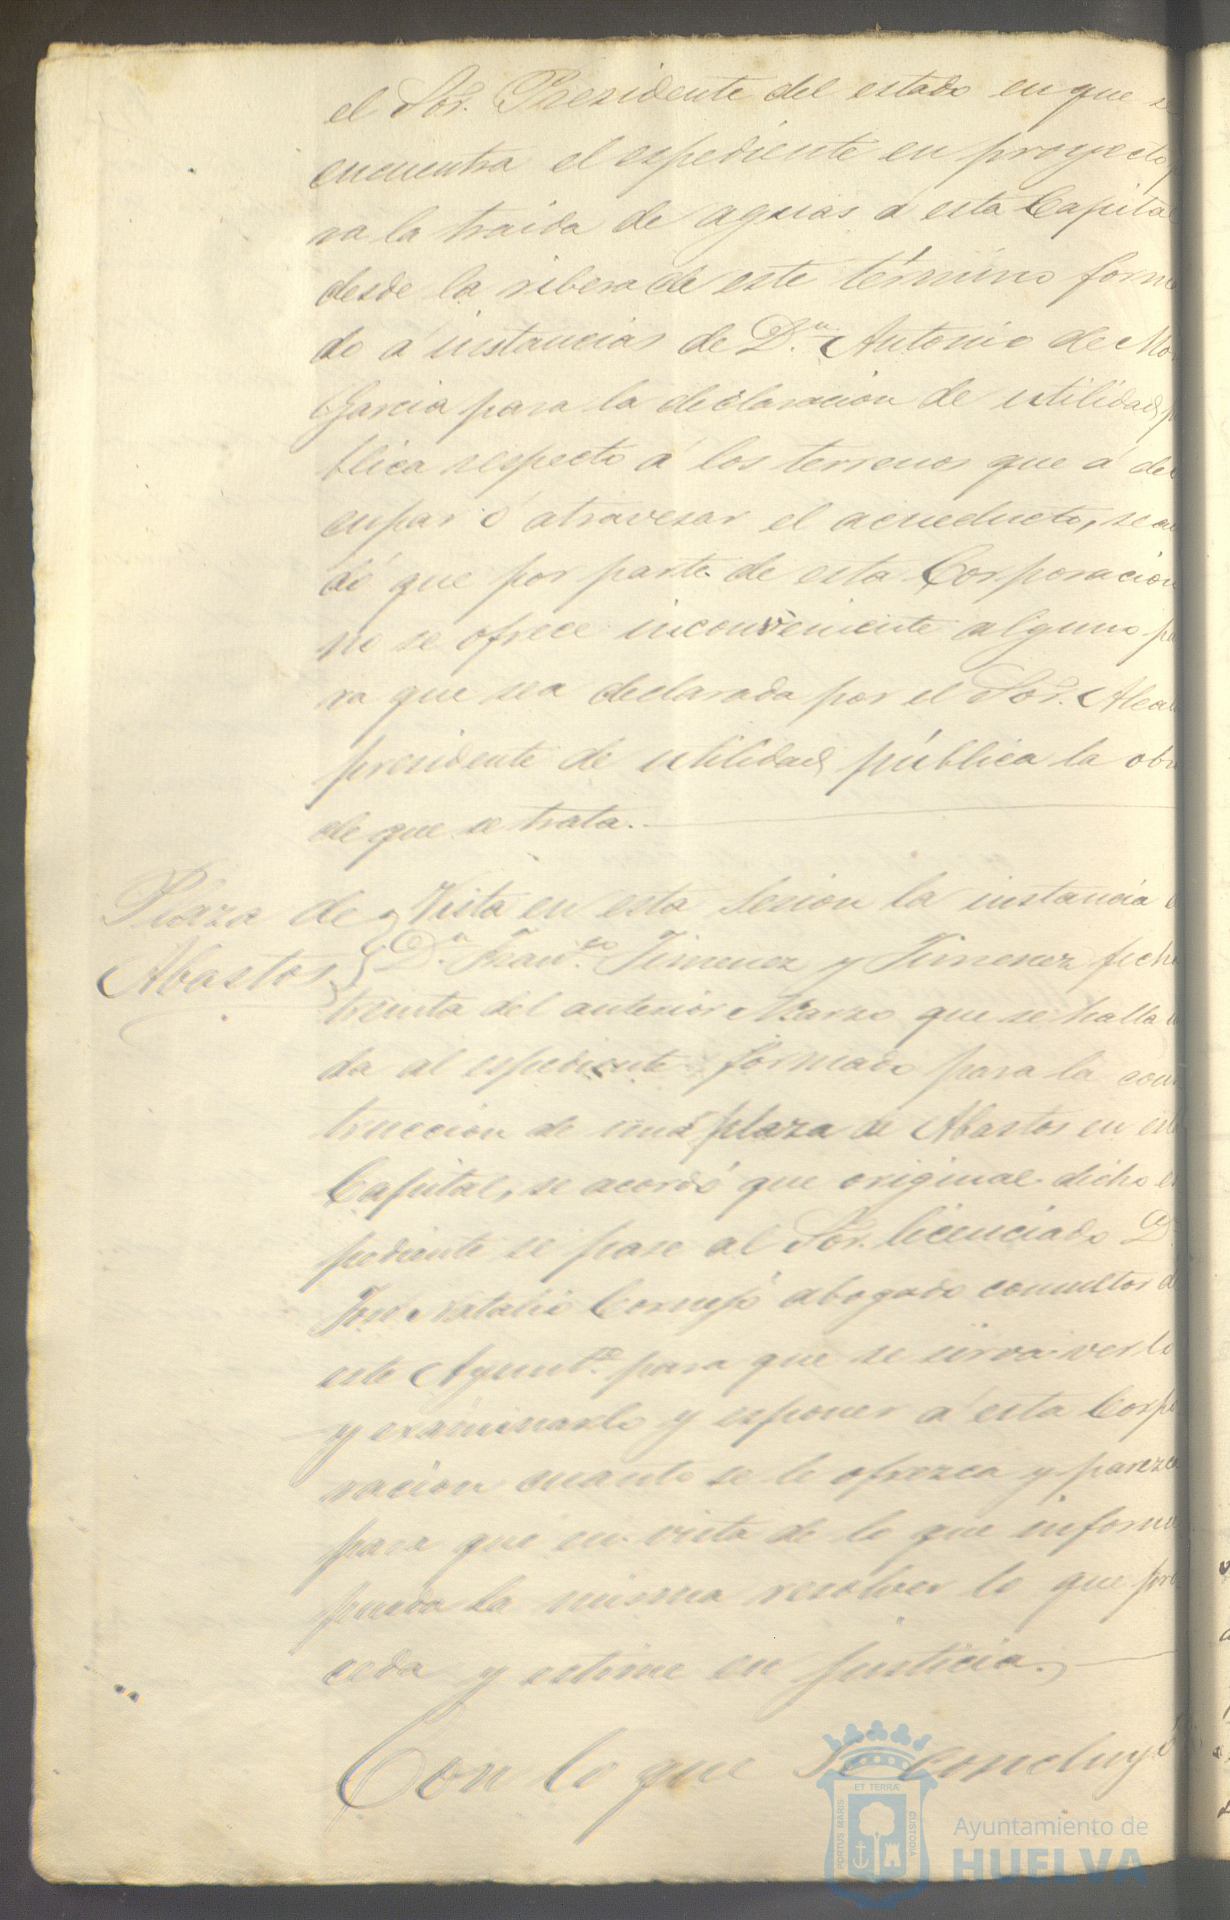 el Sor. Presidente del estado en que se
encuentra el espediente en proyecto p
ra la traida de aguas á esta Capital
desde la ribera de este término forma
do á instancias de Dn. Antonio de Mo
Garcia para la declaracion de utilidad p
blica respecto á los terrenos que á de
cupar ó atravesar el acueducto, se a
dó que por parte de esta Corporacion
no se ofrece inconveniente alguno pa
ra que sea declarada por el Sor. Alcal
presidente de utilidad pública la obra
de que se trata.
Plaza de
Abastos
Vista en esta sesion la instancia
Dn. Franco. Jimenez y Jimenez fecha
treinta del anterior Marzo que se halla
da al espediente formado para la cons
truccion de una plaza de Abastos en est
Capital, se acordó que original dicho es
pediente se pase al Sor. licenciado D
José Natalio Cornejo abogado consultor d
este Ayuntto. para que se sirva verlo
y examinarlo y esponer á esta Corpo
racion cuanto se le ofrezca y parezca
para que en vista de lo que informe
pueda la misma resolver lo que pro
ceda y estime en justicia.
Con lo que se concluyó
PORTUS MARIS ET TERRAE CUSTODIA
Ayuntamiento de
HUELVA